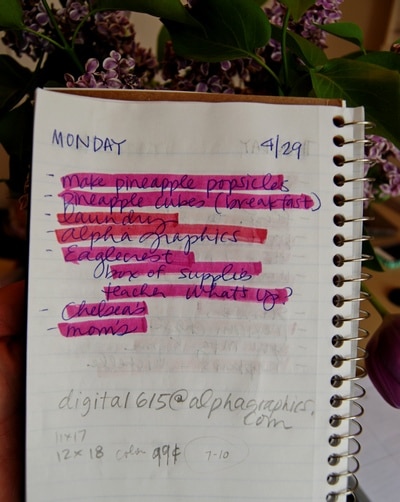 MONDAY 4/29
- make pineapple popsicles
- Pineapple cubes (breakfast)
- laundry
- alpha graphics
- Eaglecrest
box of supplies
teacher what's up?
- Chelseas
- moms
digital615@alphagraphics.
com
11x17
12x18 color 99¢ 7-10